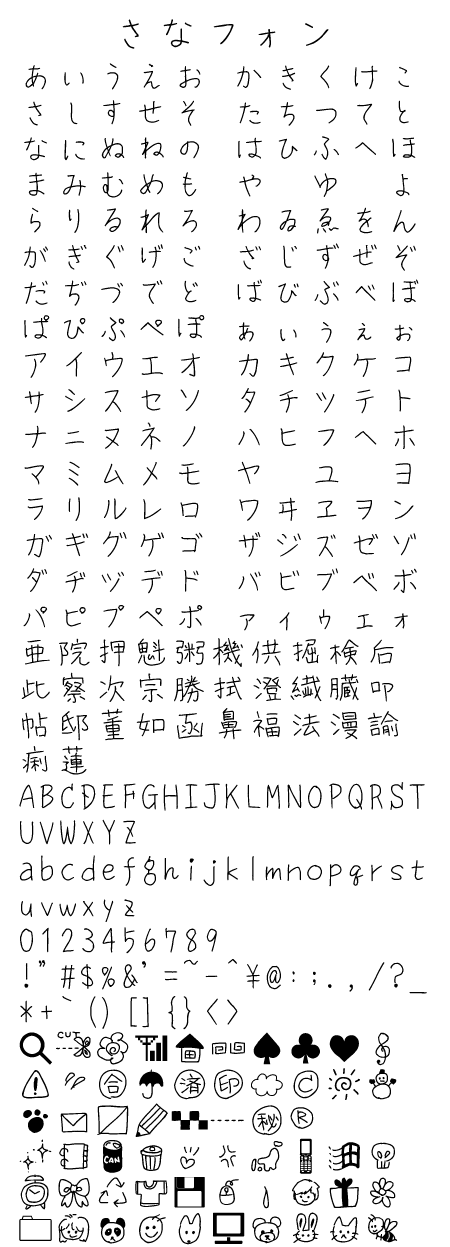 さなフォン
あいうえお かきくけこ
さしすせそ たちつてと
なにぬねの はひふへほ
まみむめも や ゆ よ
らりるれろ わゐゑをん
がぎぐげご ざじずぜぞ
だぢづでど ばびぶべぼ
ぱぴぷぺぽ ぁぃぅぇぉ
アイウエオ カキクケコ
サシスセソ タチツテト
ナニヌネノ ハヒフヘホ
マミムメモ ヤ ユ ヨ
ラリルレロ ワヰヱヲン
ガギグゲゴ ザジズゼゾ
ダヂヅデド バビブベボ
パピプペポ ァィゥェォ
亜院押魁粥機供掘検后
此察次宗勝拭澄繊臓叩
帖邸董如函鼻福法漫諭
痢蓮
ABCDEFGHIJKLMNOPQRST
UVWXYZ
abcdefghijklmnopqrst
uvwxyz
0123456789
!"#$%&'=~-^¥@:;.,/?_
*+`()[]{}<>
CUT
合 済 印 C
秘 R
CAN